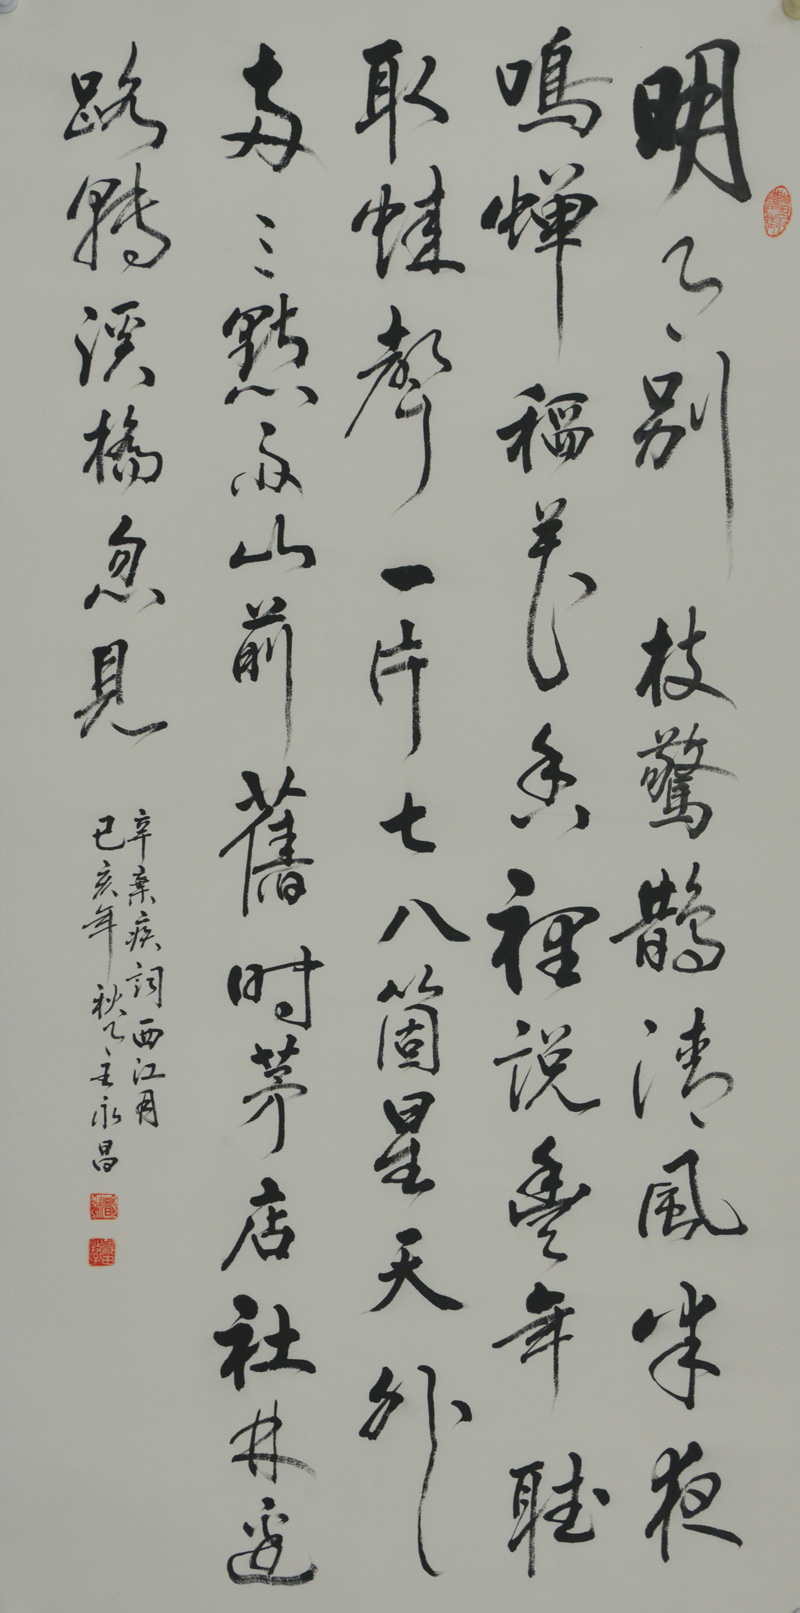 明月別枝驚鵲清風半夜
鳴蟬稻花香裡説豐年聽
取蛙聲一片七八箇星天外
兩三點雨山前舊时茅店社林邊
路轉溪橋忽見
辛棄疾詞西江月
己亥年秋月王永昌